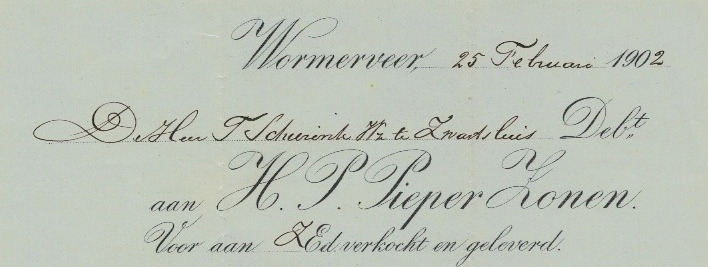 Wormerveer, 25 Februari 1902
De Heer T Schurink Wz te Zwartsluis Deb.t
aan H. P. Pieper Zonen.
Voor aan ZEd. verkocht en geleverd.